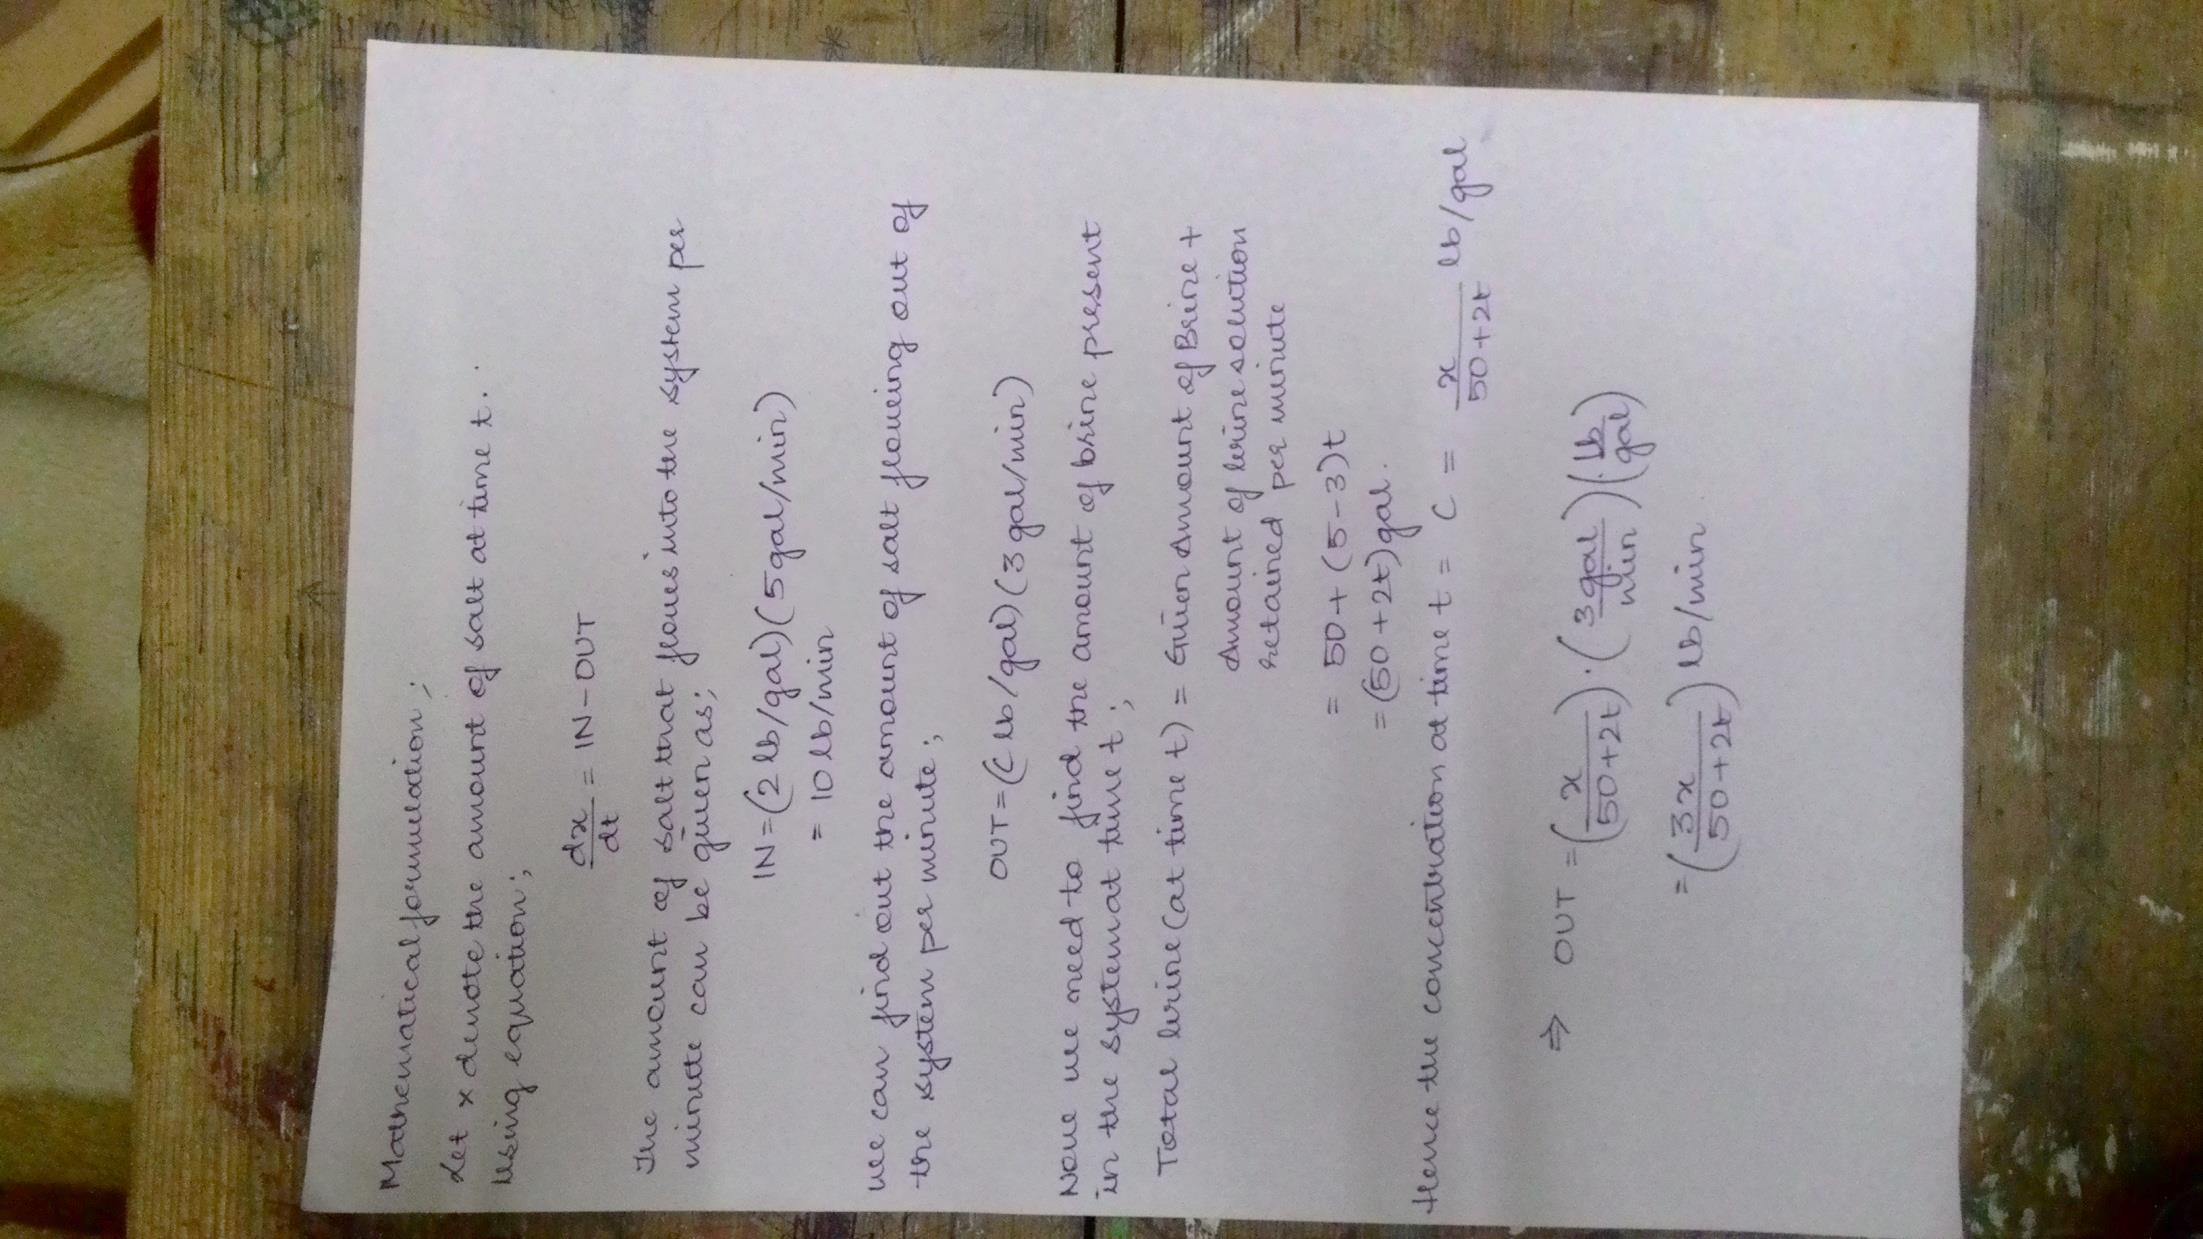 Mathematical formulation;
Let x denote the amount of salt at time t.
Using equation;
dx/dt = IN - OUT
The amount of salt that flows into the system per
minute can be given as;
IN = (2 lb/gal) (5 gal/min)
= 10 lb/min
We can find out the amount of salt flowing out of
the system per minute;
OUT = (C lb/gal) (3 gal/min)
Now we need to find the amount of brine present
in the system at time t;
Total brine (at time t) = Given Amount of Brine +
Amount of brine solution
retained per minute
= 50 + (5-3)t
= (50+2t) gal.
Hence the concentration at time t = C = x/(50+2t) lb/gal
⇒ OUT = (x/(50+2t)) · (3 gal/min) (lb/gal)
= (3x/(50+2t)) lb/min